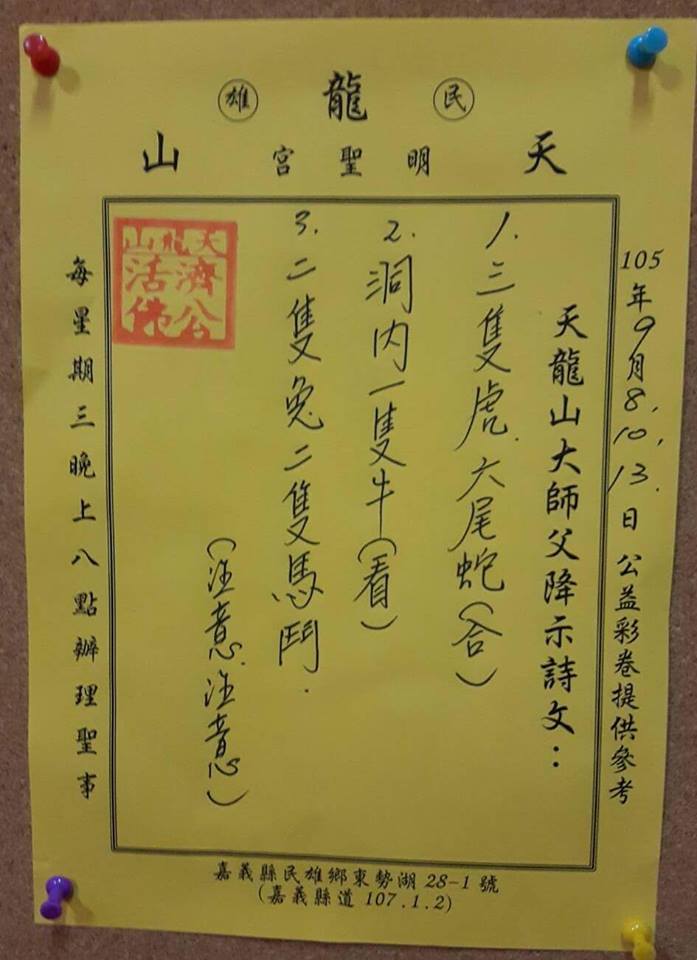 民 龍 雄
天 明聖宮 山
105年9月8,10,13.日 公益彩卷提供參考
天龍山大師父降示詩文：
1.三隻虎.六尾蛇(合)
2.洞内一隻牛(看)
3.二隻兔二隻馬鬥.
(注意.注意)
天龍山
濟公
活佛
每星期三晚上八點辦理聖事
嘉義縣民雄鄉東勢湖28-1號
(嘉義縣道107.1.2)